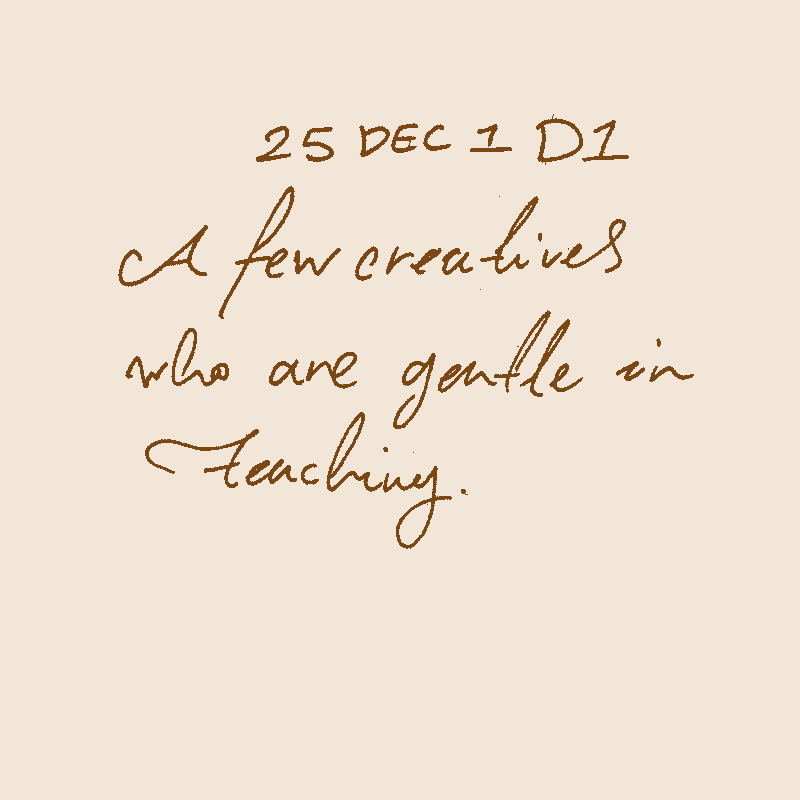 25 DEC 1 D1
A few creatives
who are gentle in
Teaching.